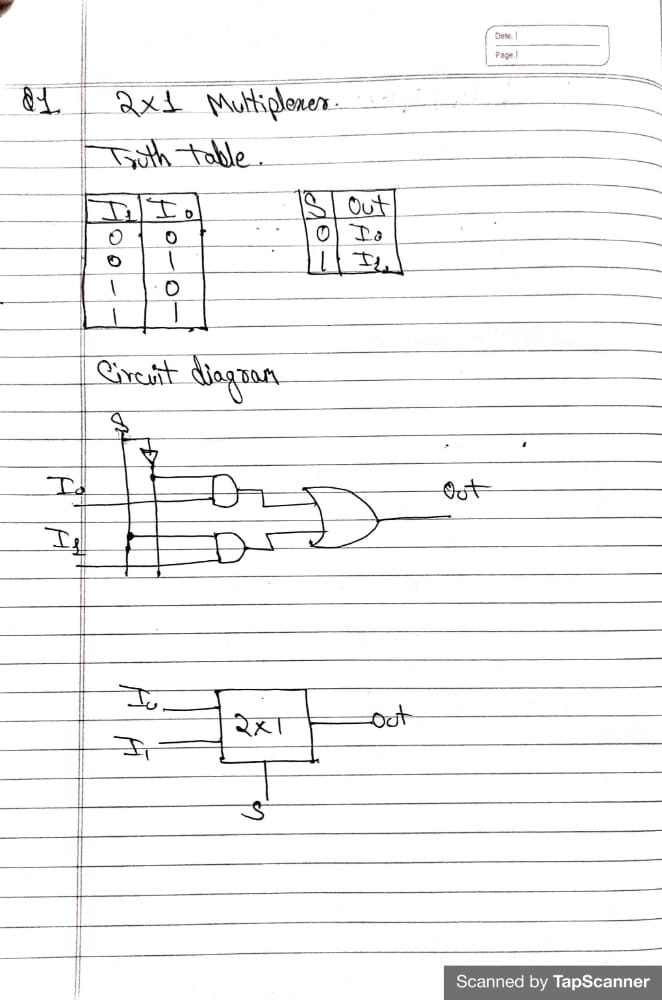 Date.
Page.
Q1 2×1 Multiplexer.
Truth table.
I1 I0
0 0
0 1
1 0
1 1
S Out
0 I0
1 I1
Circuit diagram
S
I0
I1
Out
I0
I1
2×1
Out
S
Scanned by TapScanner